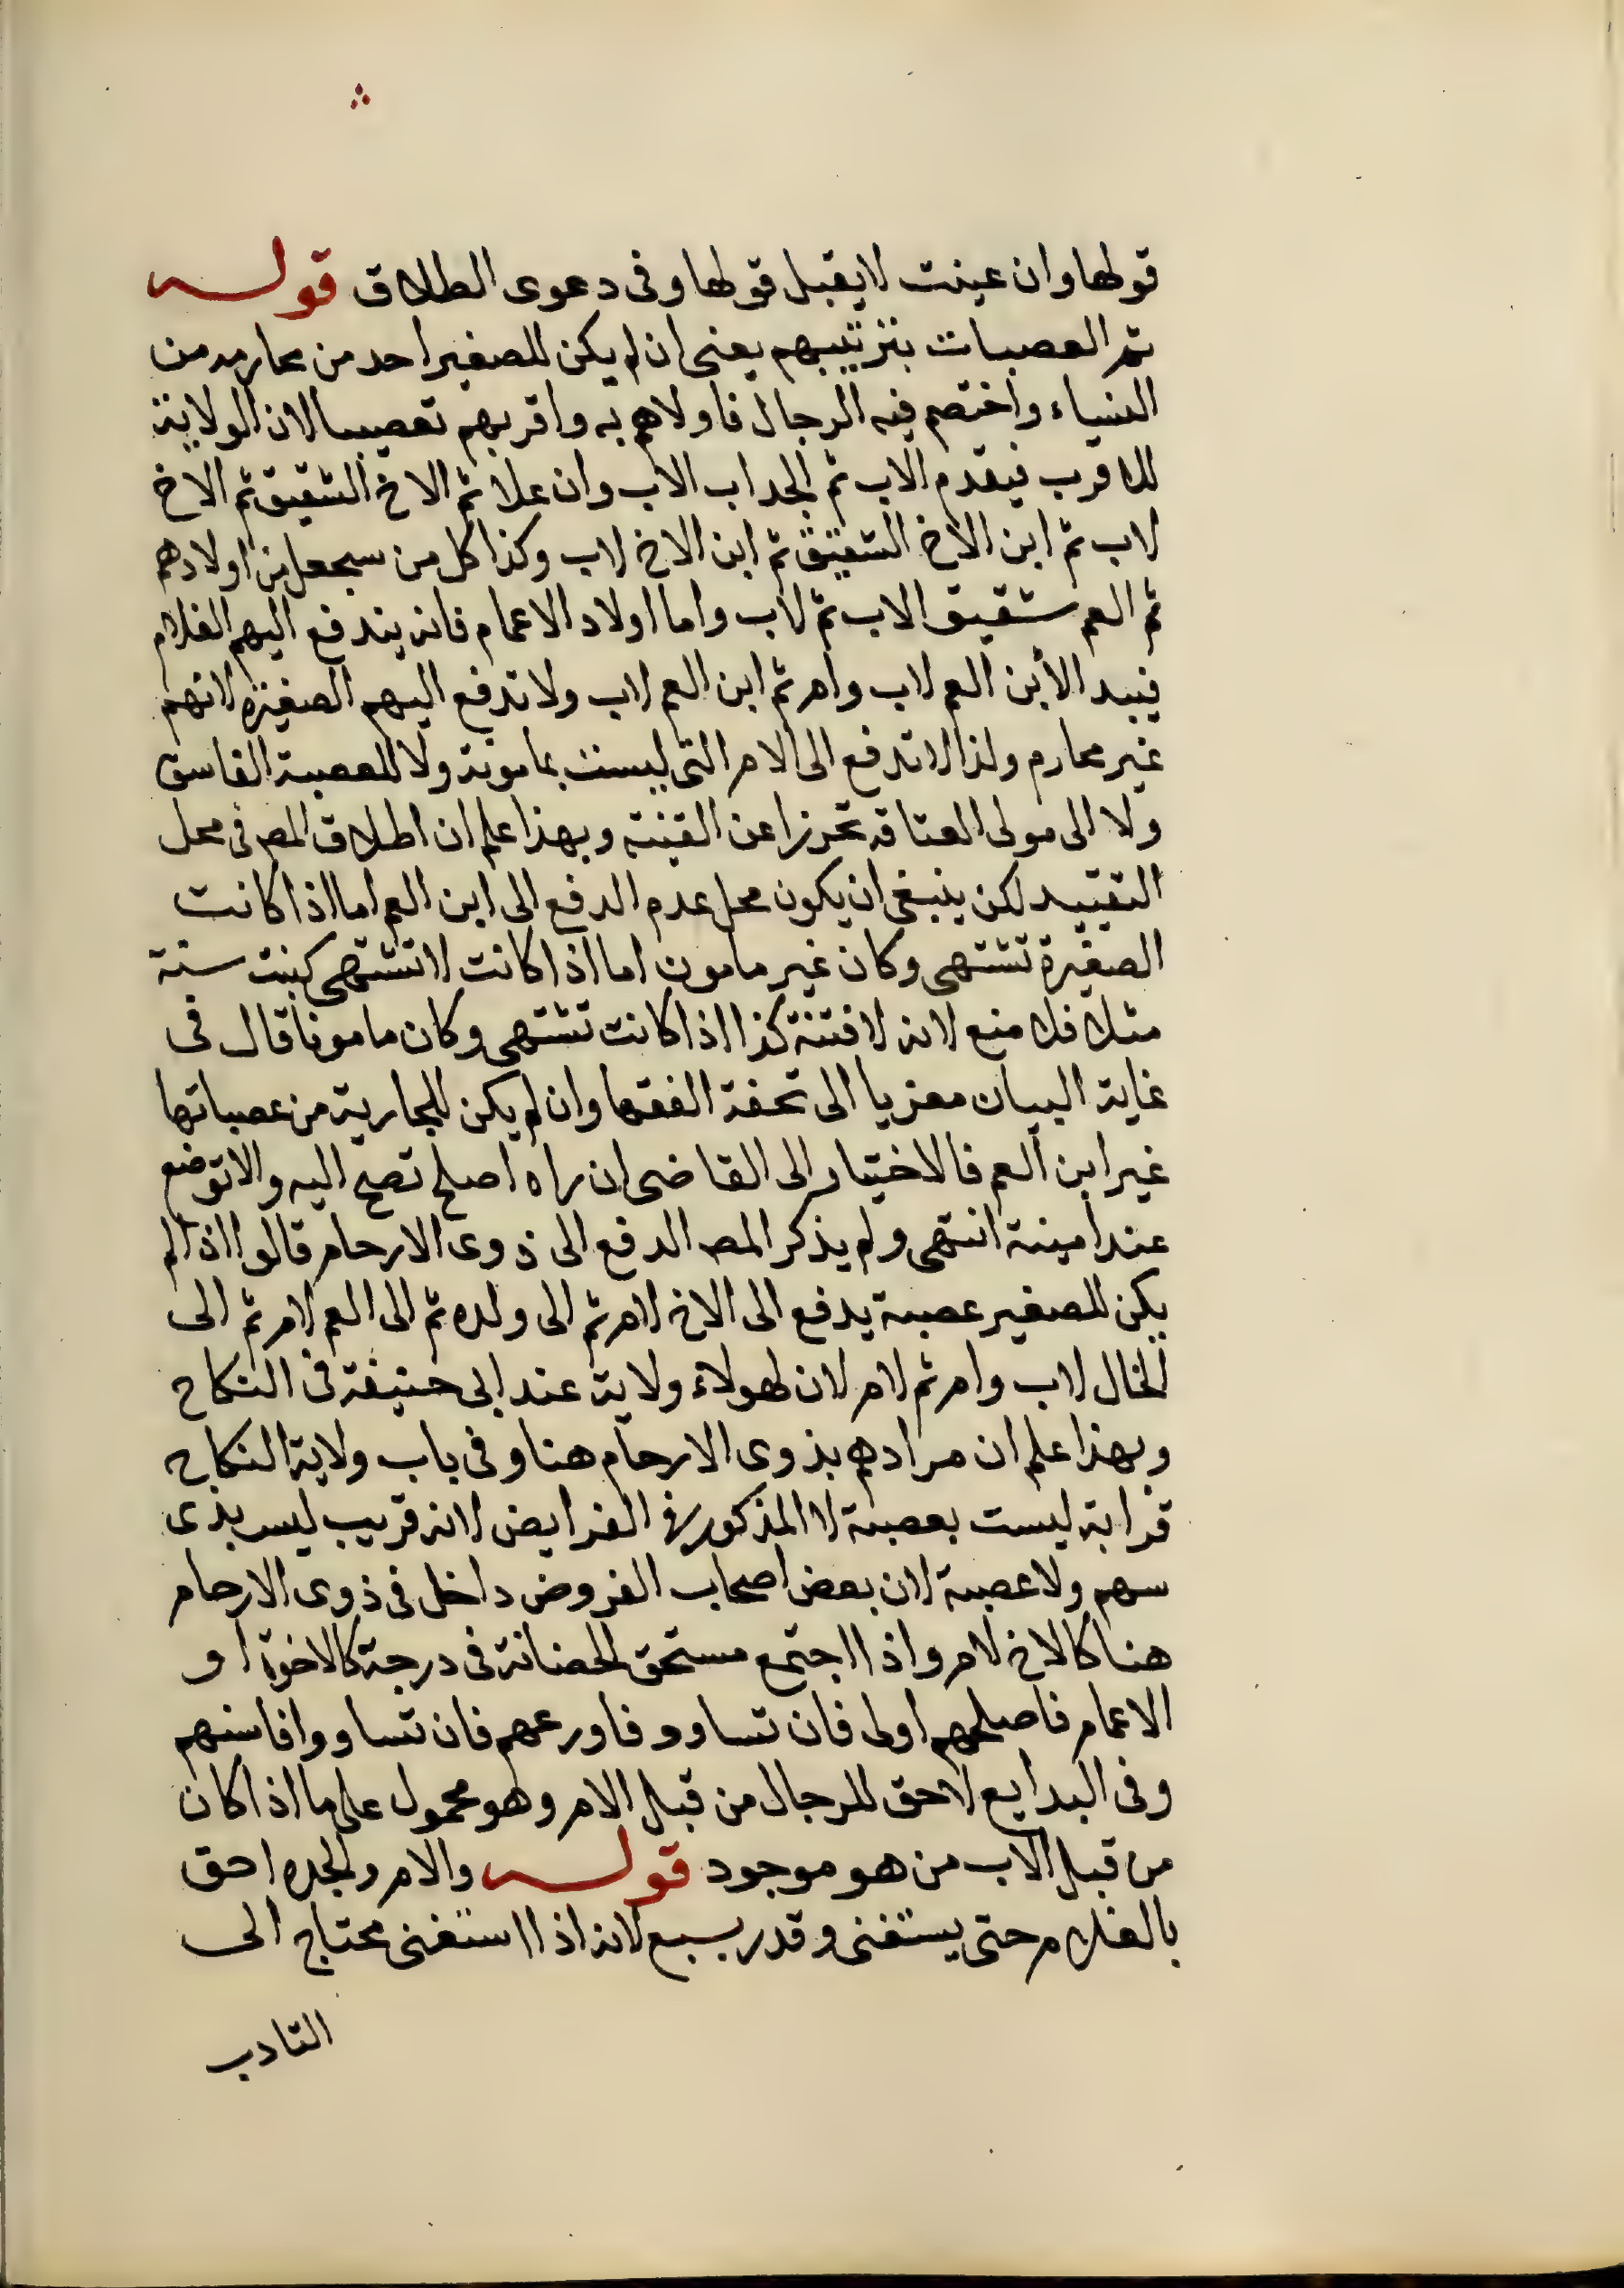 قولها وان عينت لا يقبل قولها وفى دعوى الطلاق قوله
ثم العصبات بترتيبهم يعنى ان لم يكن للصغير احد من محارمه من
النساء واختصم فيه الرجال فاولاهم به واقربهم تعصيبا لان الولاية
للاقرب فيقدم الاب ثم الجد اب الاب وان علا ثم الاخ الشقيق ثم الاخ
لاب ثم ابن الاخ الشقيق ثم ابن الاخ لاب وكذا كل من سفل من اولادهم
ثم العم شقيق الاب ثم لاب واما اولاد الاعمام فانه يندفع اليهم الغلام
فيبد الأبن العم لاب وام ثم ابن العم لاب ولا تدفع اليهم الصغيرة لانهم
غير محارم ولذا لا تدفع الى الام التى ليست بمامونة ولا للعصبة الفاسق
ولا الى مولى العتاقه تحرزا عن الفتنة وبهذا علم ان اطلاق المص فى محل
التقييد لكن ينبغى ان يكون محل عدم الدفع الى ابن العم اما اذا كانت
الصغيرة تشتهى وكان غير مامون اما اذا كانت لا تشتهى كبنت سنة
مثلا فلا منع لانه لا فتنة كذا اذا كانت تشتهى وكان مامونا قال فى
غاية البيان معزيا الى تحفة الفقها وان لم يكن للجارية من عصباتها
غير ابن العم فالاختيار الى القاضى ان راه اصلح تصح اليه والا توضع
عند امينة انتهى ولم يذكر المص الدفع الى ذوى الارحام قالوا اذا لم
يكن للصغير عصبة يدفع الى الاخ لام ثم الى ولده ثم الى العم لام ثم الى
الخال لاب وام ثم لام لان لهولاء ولاية عند ابى حنيفة فى النكاح
وبهذا علم ان مرادهم بذوى الارحام هنا وفى باب ولاية النكاح
قرابة ليست بعصبة لا المذكور فى الفرايض لانه قريب ليس بذى
سهم ولا عصبة لان بعض اصحاب الفروض داخل فى ذوى الارحام
هنا كالاخ لام واذا اجتمع مستحق الحضانة فى درجة كالاخوة او
الاعمام فاصلحهم اولى فان تساوو فاورعهم فان تساووا فاسنهم
وفى البدايع لا حق للرجال من قبل الام وهو محمول على ما اذا كان
من قبل الاب من هو موجود قوله والام والجده احق
بالغلام حتى يستغنى وقدر بسبع لانه اذا استغنى محتاج الى
التادب